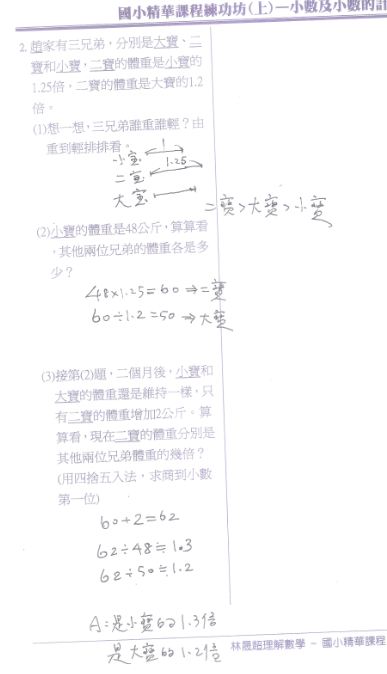 國小精華課程練功坊(上)—小數及小數的計
2. 趙家有三兄弟，分別是大寶、二
寶和小寶，二寶的體重是小寶的
1.25倍，二寶的體重是大寶的1.2
倍。
(1)想一想，三兄弟誰重誰輕？由
重到輕排排看。
小宝 1
二宝 1.25
大宝
二寶>大寶>小寶
(2)小寶的體重是48公斤，算算看
，其他兩位兄弟的體重各是多
少？
48×1.25=60⇒二寶
60÷1.2=50⇒大寶
(3)接第(2)題，二個月後，小寶和
大寶的體重還是維持一樣，只
有二寶的體重增加2公斤。算
算看，現在二寶的體重分別是
其他兩位兄弟體重的幾倍？
(用四捨五入法，求商到小數
第一位)
60+2=62
62÷48≒1.3
62÷50≒1.2
A:是小寶的1.3倍
是大寶的1.2倍
林晟超理解數學 – 國小精華課程